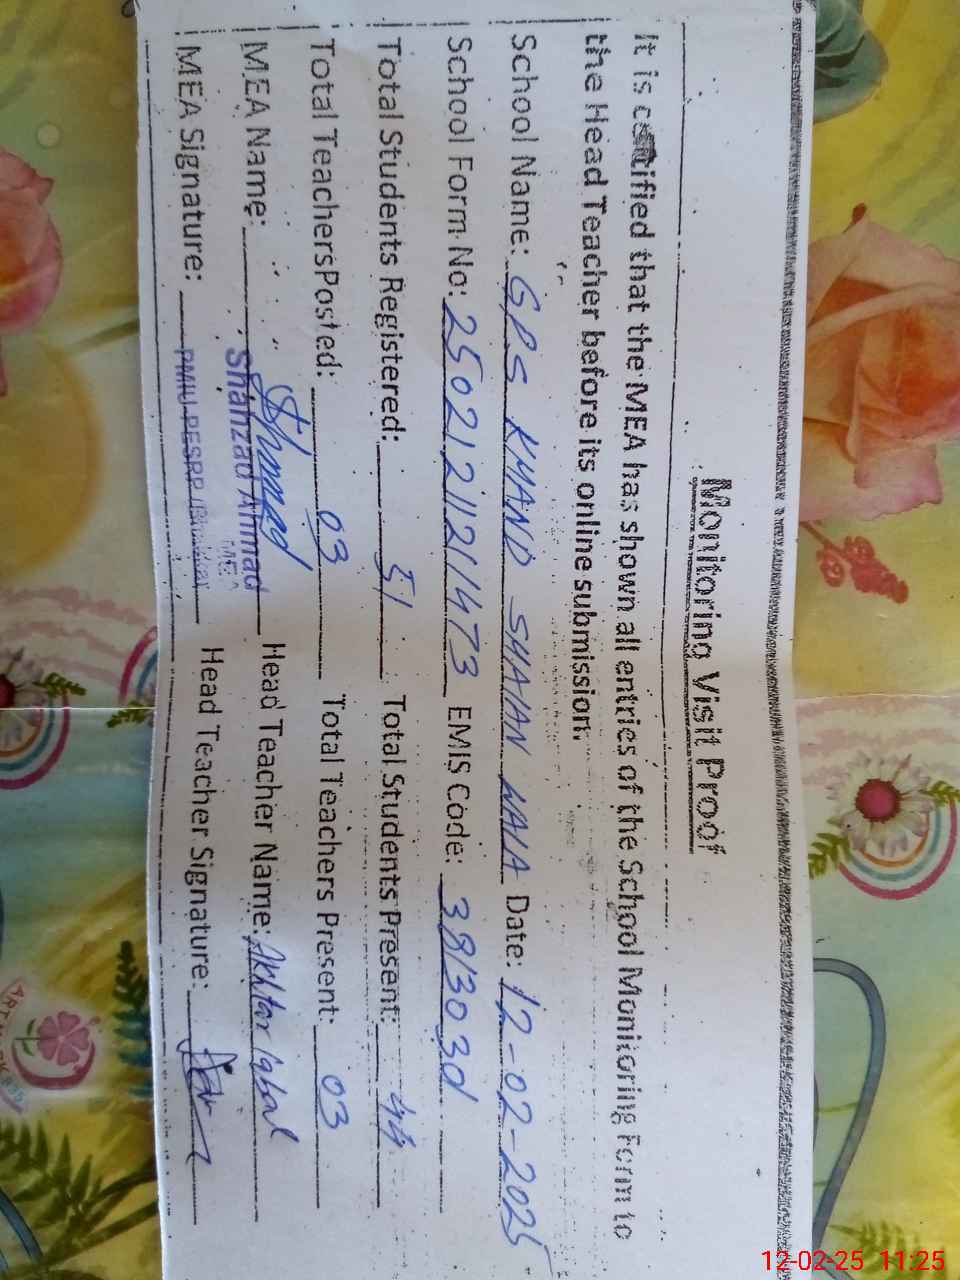 Monitoring Visit Proof
It is certified that the MEA has shown all entries of the School Monitoring Form to
the Head Teacher before its online submission.
School Name: GPS KHAND SHAIAN WALA Date: 12-02-2025
School Form No: 25021211211473 EMIS Code: 38130301
Total Students Registered: 51 Total Students Present: 44
Total TeachersPosted: 03 Total Teachers Present: 03
MEA Name: Shahzad Ahmad Head Teacher Name: Akhtar Iqbal
MEA
MEA Signature: PMIU-PESRP (Bhakkar) Head Teacher Signature:
12-02-25 11:25